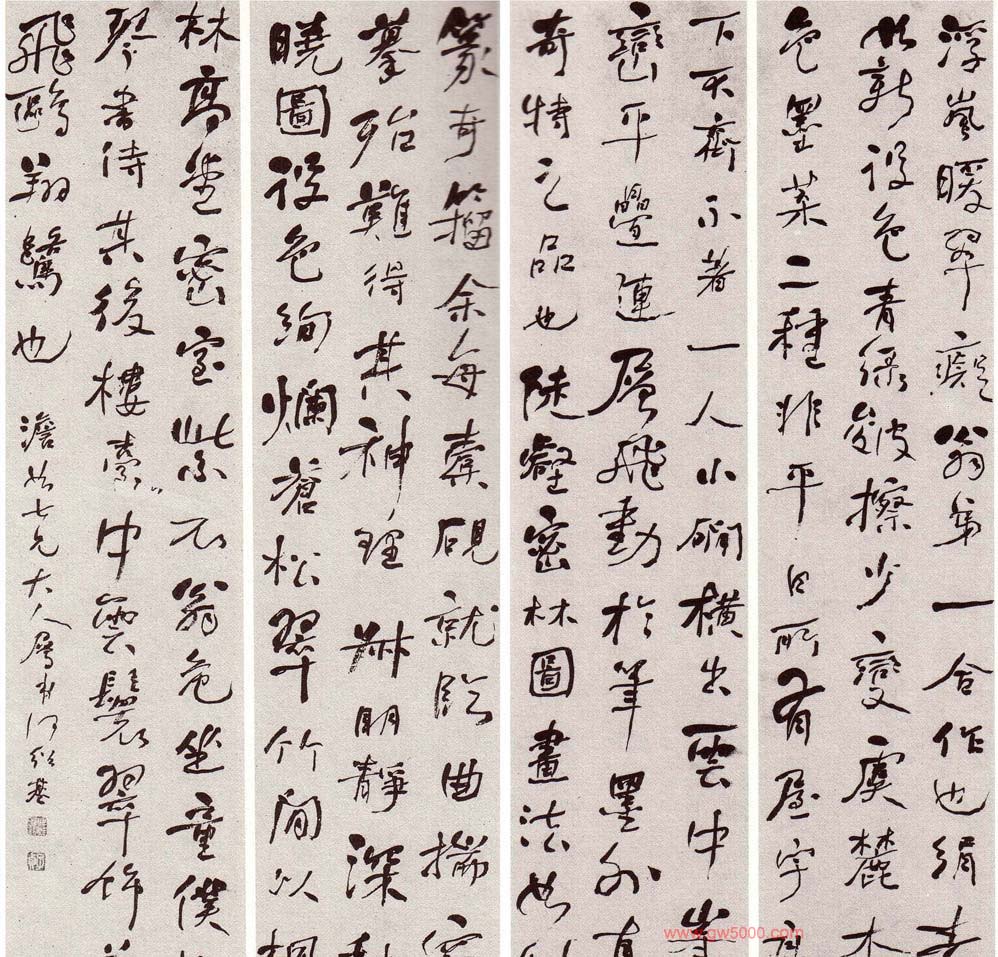 浮嵐暖翠癡翁第一合作也絹素
如新設色青綠皴擦少變虞麓木
色墨葉二種非平日所有屋宇
下不齊不著一人小磵橫出雲中
巒平疊連層飛動於筆墨外真
奇特之品也陡壑密林圖畫法如
篆奇籀余每橐硯就臨曲揣
摹殆難得其神理靜深
曉圖設色絢爛蒼松翠竹間以楓
林高堂密室紫衣翁危坐童僕
琴書侍其後樓臺中雲鬟翠飾
飛鷗翔鷺也 澹如七兄大人屬書何紹基
www.gw5000.com